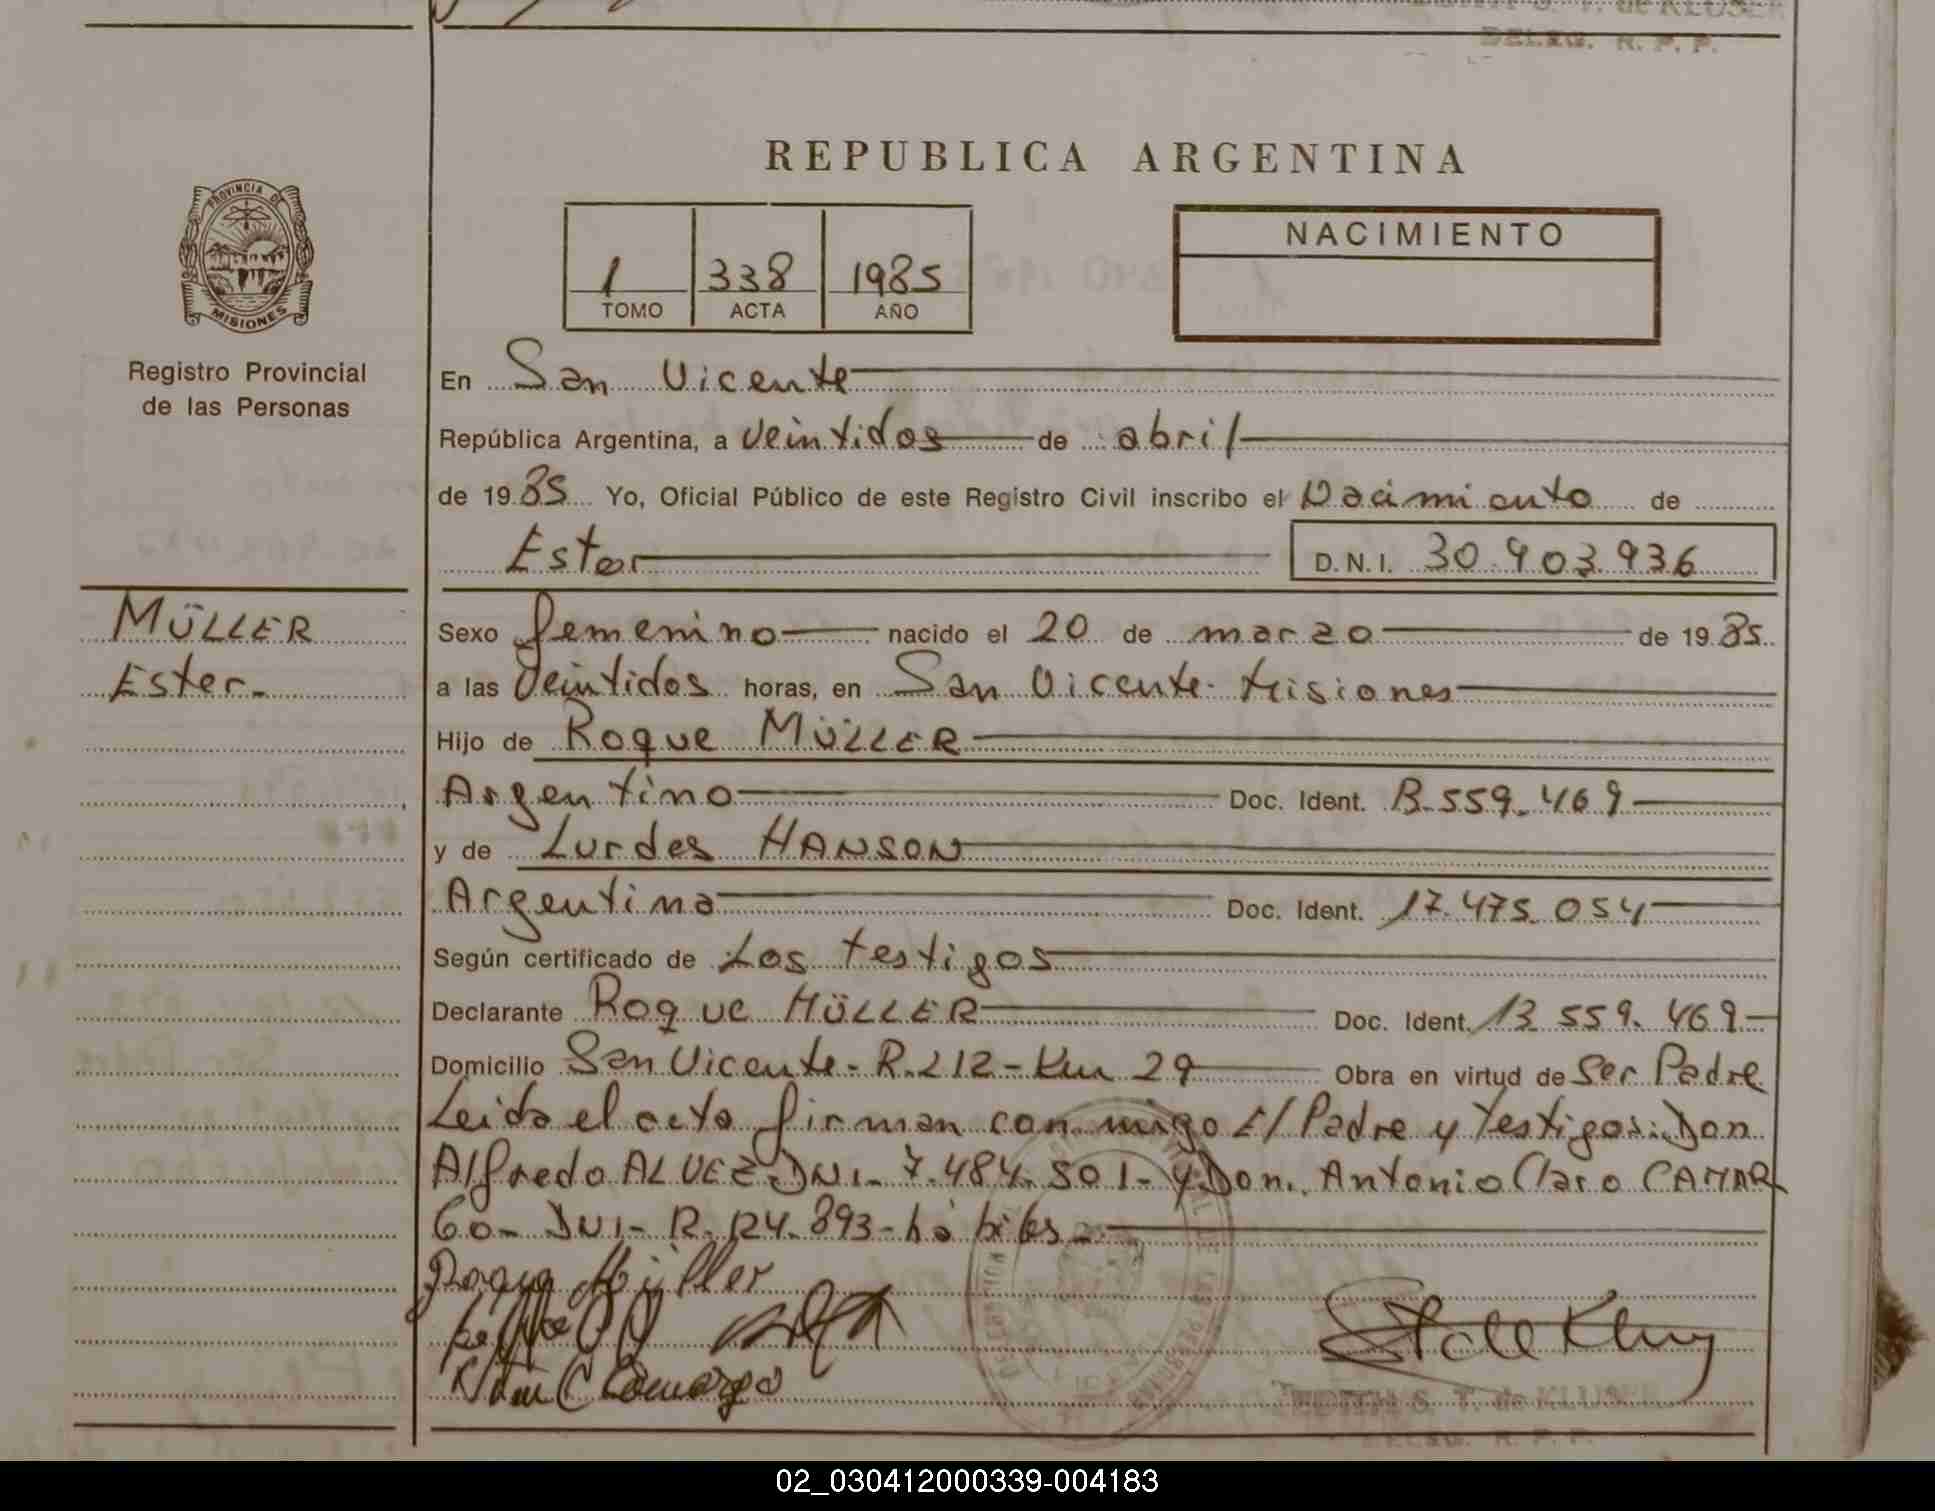 T. de KLUSER
DELEG. R. P. P.
REPUBLICA ARGENTINA
PROVINCIA DE
MISIONES
Registro Provincial
de las Personas
1 338 1985
TOMO ACTA AÑO
NACIMIENTO
En San Vicente
República Argentina, a veintidos de abril
de 1985 Yo, Oficial Público de este Registro Civil inscribo el Nacimiento de
Ester D.N.I. 30.903.936
MÜLLER
Ester.
Sexo femenino nacido el 20 de marzo de 1985
a las Veintidos horas, en San Vicente- Misiones
Hijo de Roque MÜLLER
Argentino Doc. Ident. 13.559.469
y de Lurdes HANSON
Argentina Doc. Ident. 17.475.054
Según certificado de Los testigos
Declarante Roque MÜLLER Doc. Ident. 13 559.469
Domicilio San Vicente- R.212- Km 29 Obra en virtud de Ser Padre
Leida el acta firman conmigo El Padre y Testigos: Don
Alfredo ALVEZ DNI- 7.484.501- y Don. Antonio Claro CAMAR
GO- DNI- R. 124.893- hábiles-
Roque Müller
Camargo
EDITH S. T. de KLUSER
DELEG. R. P. P.
02_030412000339-004183